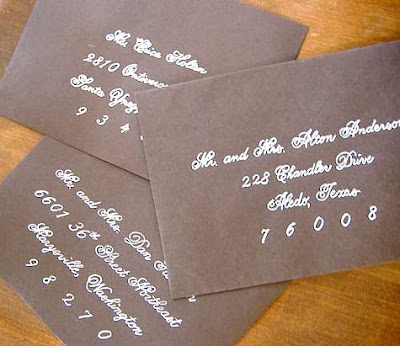 Ms. Erica Holton
2810
Santa Ynez
9 3 4
Mr. and Mrs. Alton Anderson
228 Chandler Drive
Aledo, Texas
7 6 0 0 8
Mr. and Mrs. Dan
6601 36th Street Northeast
Marysville, Washington
9 8 2 7 0